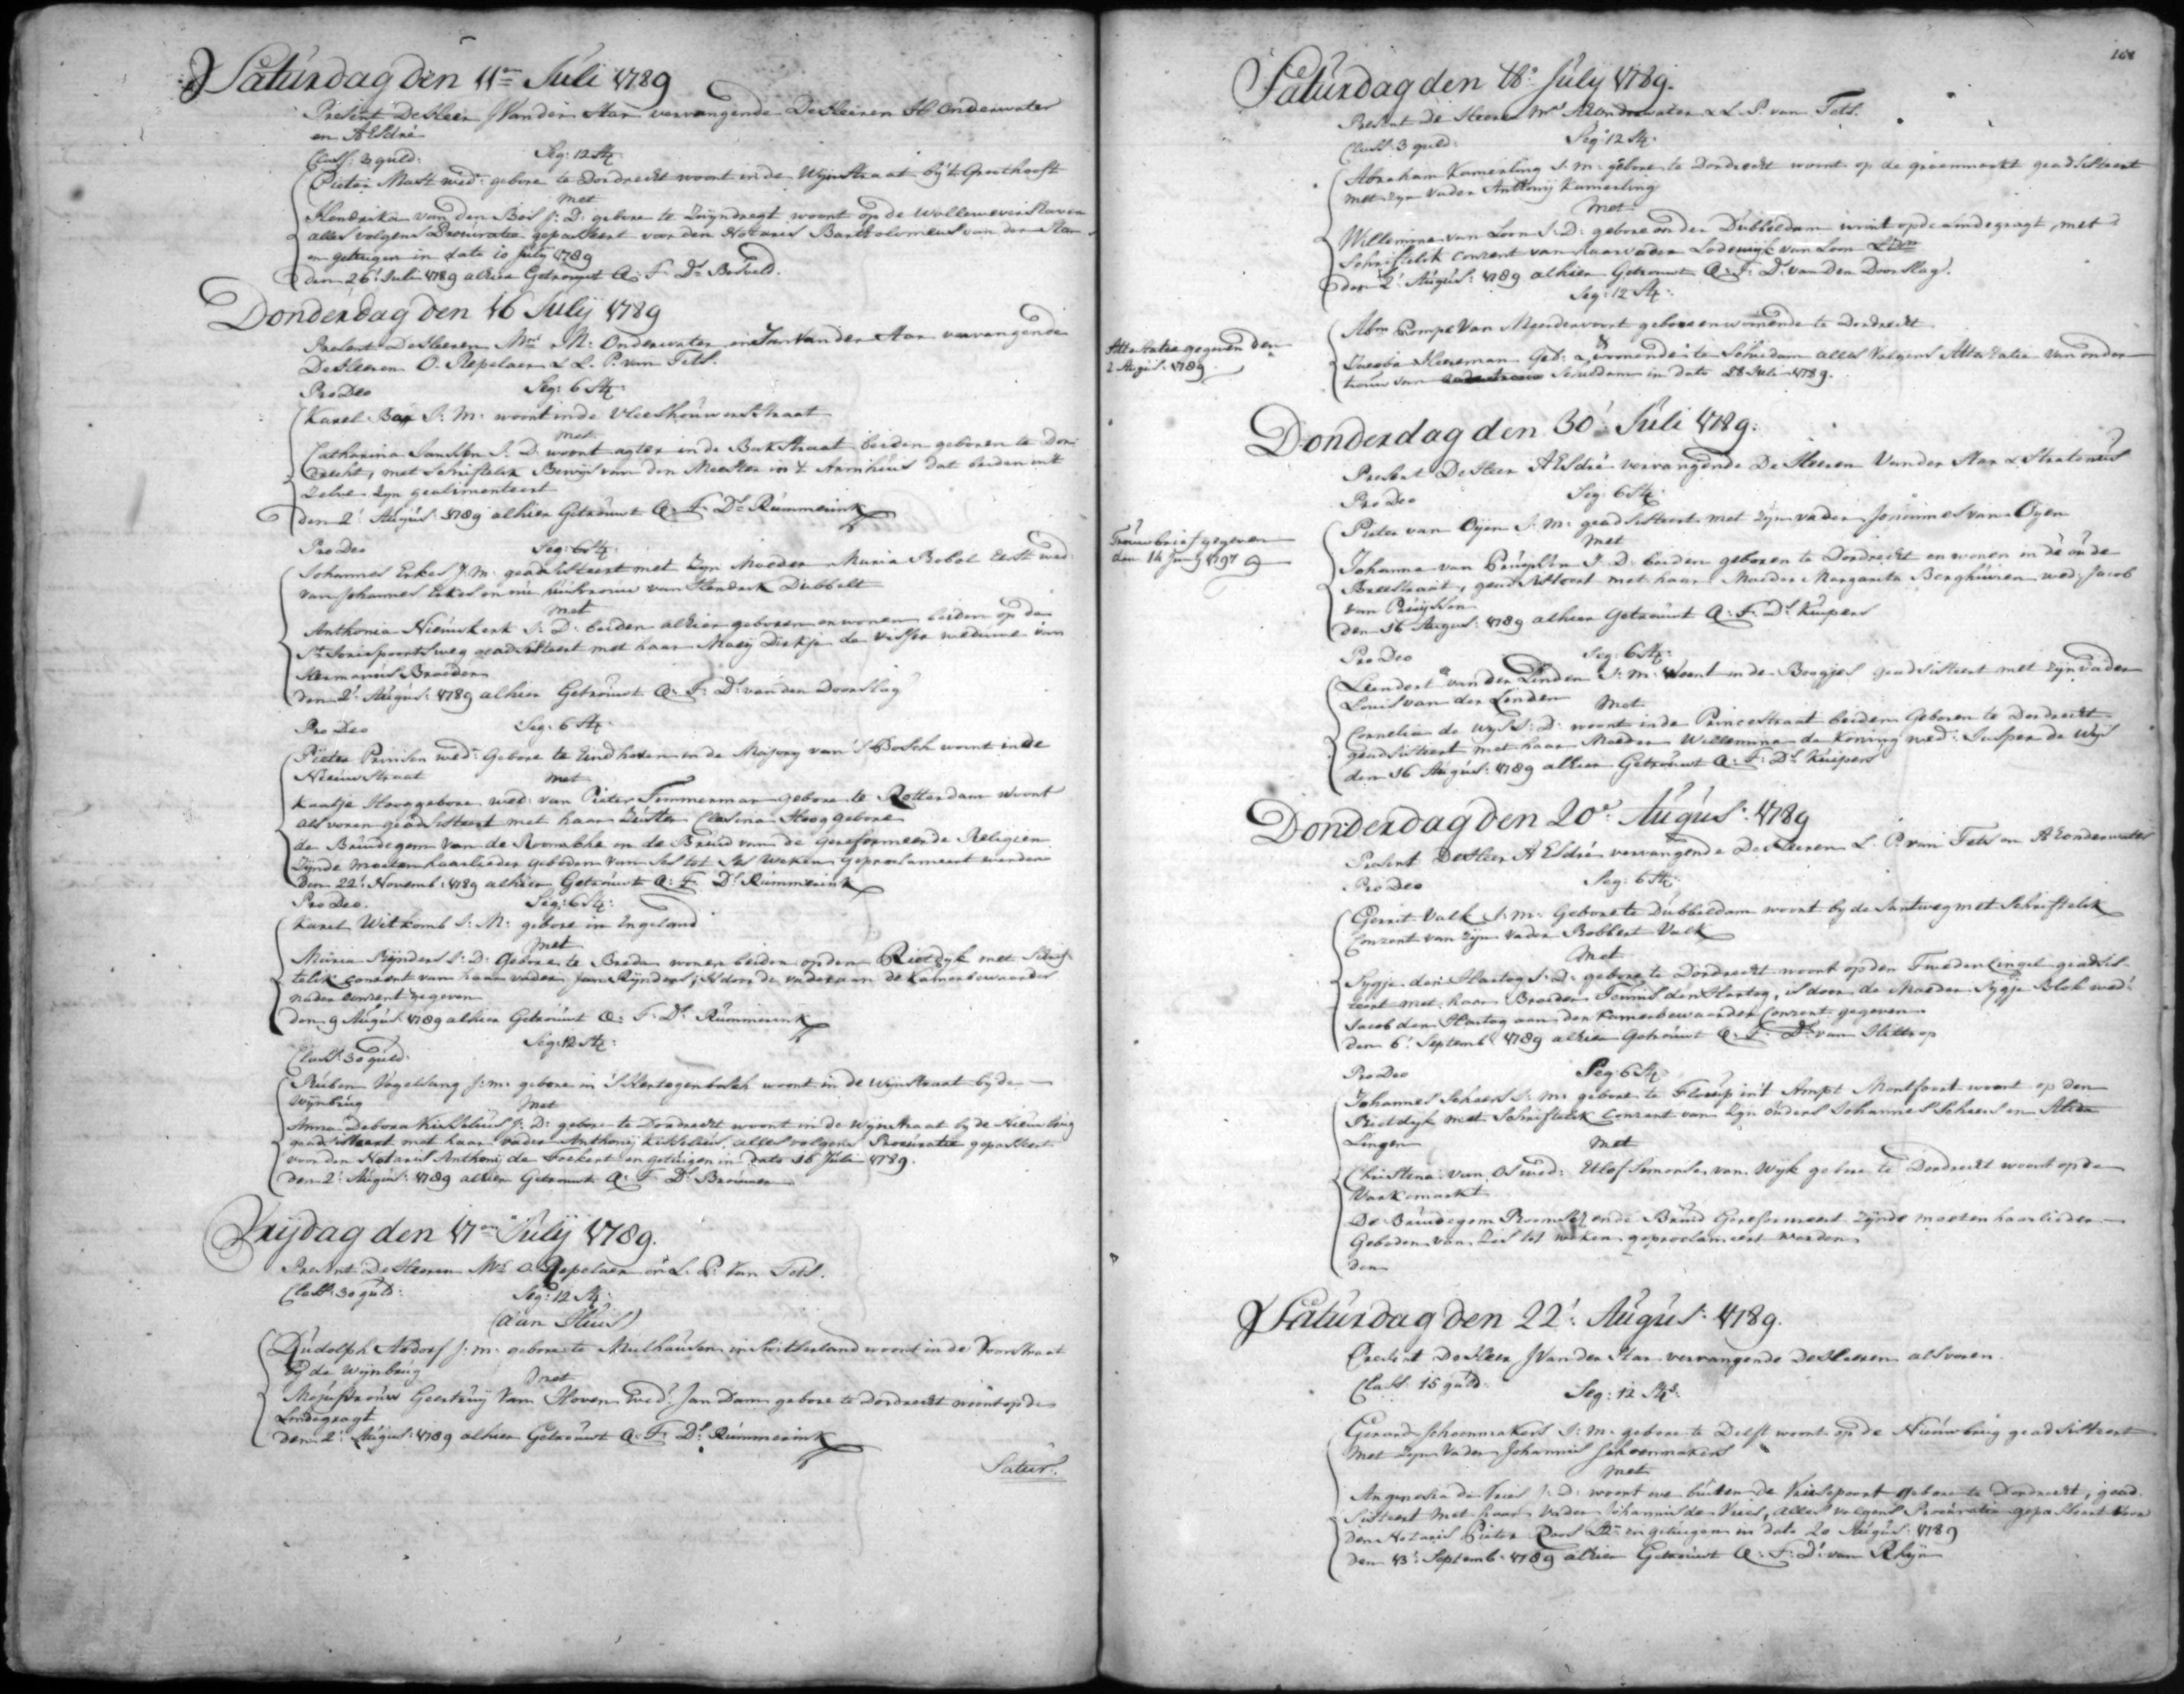 Saturdag den 11en Juli 1789
Present De Heer J Van der Star vervangende De Heeren At Onderwater
en A Elsdré
Class: 3 guld: Seg: 12 St:
Pieter Mast wed: gebore te Dordrecht woont in de Wynstraat by 't Groothooft
met
Hendrika van den Bos J: D: gebore te Zwyndregt woont op de Wollewevershaven
alles volgens Procuratie gepasseert voor den Notaris Bartholomeus van der Star
en getuigen in dato 10 July 1789
den 26' Juli 1789 alhier Getrouwt Q: F: Ds Bosveld.
Donderdag den 16 Julij 1789
Present De Heeren Mrs M: Onderwater en Jan Van der Star vervangende
De Heeren O. Repelaer & L. P. van Tets.
Pro Deo Seg: 6 St:
Karel Bax J: M: woont in de Vleeshouwersstraat
met
Catharina Janssen J. D: woont agter in de Barkstraat beiden geboren te Dor
drecht, met schriftelik Bewys van den Meester in 't Armhuis dat beiden uit
zelve zyn gealimenteert
den 2' Augus: 1789 alhier Getrouwt Q: F: Ds Rummerink
Pro Deo Seg: 6 St:
Johannes Erkes J: M: geadsisteert met Zyn Moeder Maria Rebol Eerst wed:
van Johannes Erkes en nu huisvrouw van Hendrik Dubbelt
met
Anthonia Nieuwkerk J: D: beiden alhier geboren en wonen beiden op de
St Jorispoortsweg geadsisteert met haar Moey Dirkje de Visser weduwe van
Hermanus Broeders
den 2' Augus: 1789 alhier Getrouwt Q: F: Ds van den Doorslag
Pro Deo Seg: 6 St:
Pieter Prinsen wed: Gebore te Eindhoven in de Majory van 's Bosch woont in de
Nieuwstraat met
Kaatje Hooggebore wed: van Pieter Timmerman gebore te Rotterdam woont
als voren geadsisteert met haar Zuster Clasina Hooggebore
de Bruidegom van de Roomsche en de Bruid van de Gereformeerde Religien
Zynde moeten haarlieder geboden van ses tot ses weken geproclameert werden
Den 22' Novemb: 1789 alhier Getrouwt Q: F: Ds Rummerink
Pro Deo. Seg: 6 St:
Karel Witkomb J: M: gebore in Engeland
met
Maria Rynders J: D: Gebore te Breda wonen beiden op den Rietdyk met Schrif
telik Consent van haar vader Jan Rynders, is door de vader aan de Kamerbewaarder
nader consent gegeven
den 9 Augus: 1789 alhier Getrouwt Q: F: Ds Rummerink
Class: 30 guld: Seg: 12 St:
Ruben Vogelsang J: m: gebore in 's Hertogenbosch woont in de Wynstraat by de
Wynbrug met
Anna Debora Kisselius J: D: gebore te Dordrecht woont in de Wynstraat by de Nieuwbrug
geadsisteert met haar vader Anthony Kisselius, alles volgens Procuratie gepasseert
voor den Notaris Anthony de Fockert en getuigen in dato 16 Juli 1789.
den 2' Augus: 1789 alhier Getrouwt Q: F: Ds Brouwer
Vrijdag den 17en Julij 1789.
Present De Heeren Mrs O Repelaer en L. P: Van Tets.
Class: 30 guld: Seg: 12 St:
(aan Huis)
Rudolph Nodorf J: m: gebore te Mulhausen in Switserland woont in de Voorstraat
by de Wynbrug met
Mejufvrouw Geertruy Van Hoven Wed: Jan Dam gebore te Dordrecht woont op de
Lindegragt
den 2' Augus: 1789 alhier Getrouwt Q: F: Ds Rummerink
Satur.
Saturdag den 18' July 1789.
Present De Heeren Mrs At Onderwater & L. P. van Tets.
Class: 3 guld: Seg: 12 St:
Abraham Kamerling J. m: gebore te Dordrecht woont op de groenmarkt geadsisteert
met zyn vader Anthony Kamerling
met
Willemina van Loon J: D: gebore onder Dubbeldam woont op de Lindegragt, met
Schriftelik Consent van haar vader Lodewyk van Loon
den 2' Augus: 1789 alhier Getrouwt Q: F: Ds van den Doorslag.
Seg: 12 St:
Attestatie gegeven den
2 Augus: 1789
Abm Pompe Van Meerdervoort gebore en wonende te Dordrecht
&
Jacoba Heneman Geb: & wonende te Schiedam alles Volgens Attestatie van onder
trouw van Schiedam in dato 18 Juli 1789.
Donderdag den 30' Juli 1789.
Present De Heer A Elsdré vervangende De Heeren Van der Star & Stratenus
Pro Deo Seg: 6 St:
Trouwbrief gegeven
den 14 Juny 1797
Pieter van Oyen J. m: geadsisteert met zyn vader Johannes van Oyen
met
Johanna van Pruyssen J: D: beiden geboren te Dordrecht en wonen in de oude
Breestraat, geadsisteert met haar Moeder Margareta Berghuisen wed: Jacob
van Pruyssen
den 16 Augus: 1789 alhier Getrouwt Q: F: Ds Kuipers
Pro Deo Seg: 6 St:
Leendert van der Linden J: m: Woont in de Boogjes geadsisteert met zyn vader
Louis van der Linden met
Cornelia de Wys J: D: woont in de Princestraat beiden Geboren te Dordrecht
geadsisteert met haar Moeder Willemina de Koning wed: Jasper de Wys
den 16 Augus: 1789 alhier Getrouwt Q: F: Ds Kuipers
Donderdag den 20e Augus: 1789
Present De Heer A Elsdré vervangende De Heeren L. P. van Tets en At Onderwater
Pro Deo Seg: 6 St:
Gerrit Valk J: m: Gebore te Dubbeldam woont by de Santweg met Schriftelik
Consent van zyn vader Bobbert Valk
met
Sygje den Hartog J: D: gebore te Dordrecht woont op den Tweeden Cingel geadsis
teert met haar Broeder Teunis den Hartog, is door de Moeder Sygje Blok wed:
Jacob den Hartog aan den Kamerbewaarder Consent gegeven
den 6' Septemb: 1789 alhier Getrouwt Q: F: Ds van Hettrop
Pro Deo Seg: 6 St:
Johannes Scheers J: m: gebore te Florip int Ampt Montfoort woont op den
Rietdyk met Schriftelik Consent van zyn ouders Johannes Scheers en Alida
Lingen met
Christina van Os wed: Ellof Simonse van Wyk gebore te Dordrecht woont op de
Varkemarkt
De Bruidegom Roomsch en de Bruid Gereformeert zynde moeten haarlieder
Geboden van Zes tot weken geproclameert werden
den
Saturdag den 22' Augus: 1789.
Present De Heer J Van der Star vervangende De Heeren als voren
Class: 15 guld: Seg: 12 St:
Gerard Schoenmakers J: m: gebore te Delft woont op de Nieuwbrug geadsisteert
met zyn Vader Johannis Schoenmakers
met
Angenesia de Vries J: D: woont eve buiten de Vriesepoort gebore te Dordrecht, gead
sisteert met haar Vader Johannis de Vries, alles volgens Procuratie gepasseert voor
den Notaris Pieter Roos en getuigen in dato 20 Augus: 1789
den 13' Septemb: 1789 alhier Getrouwt Q: F: Ds van Rhyn